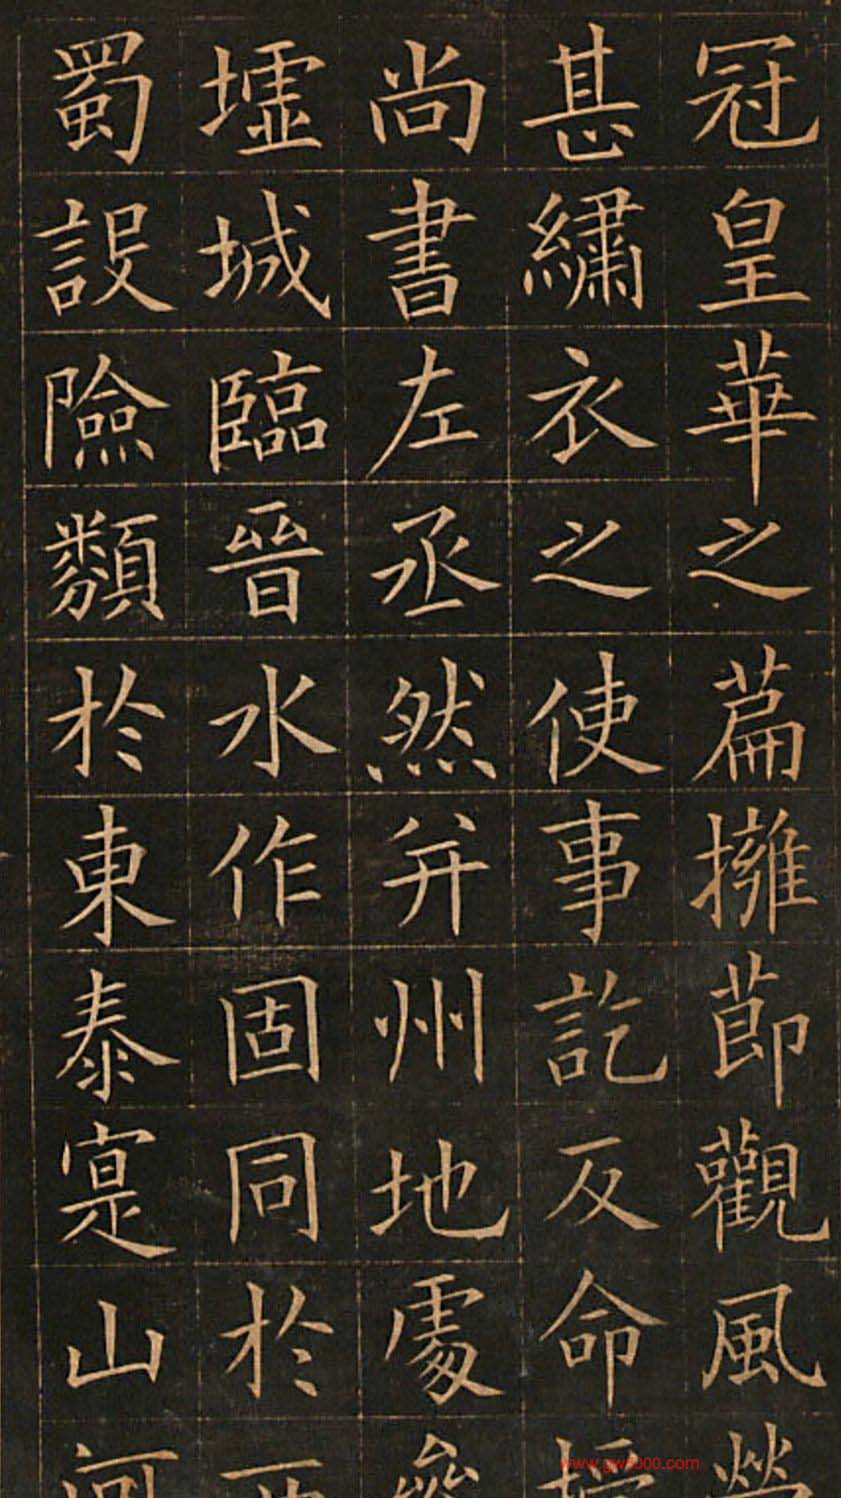 冠皇華之篇擁節觀風
甚繡衣之使事訖反命
尚書左丞然并州地處參
墟城臨晉水作固同於西
蜀設險類於東秦寔山河
www.gw5000.com